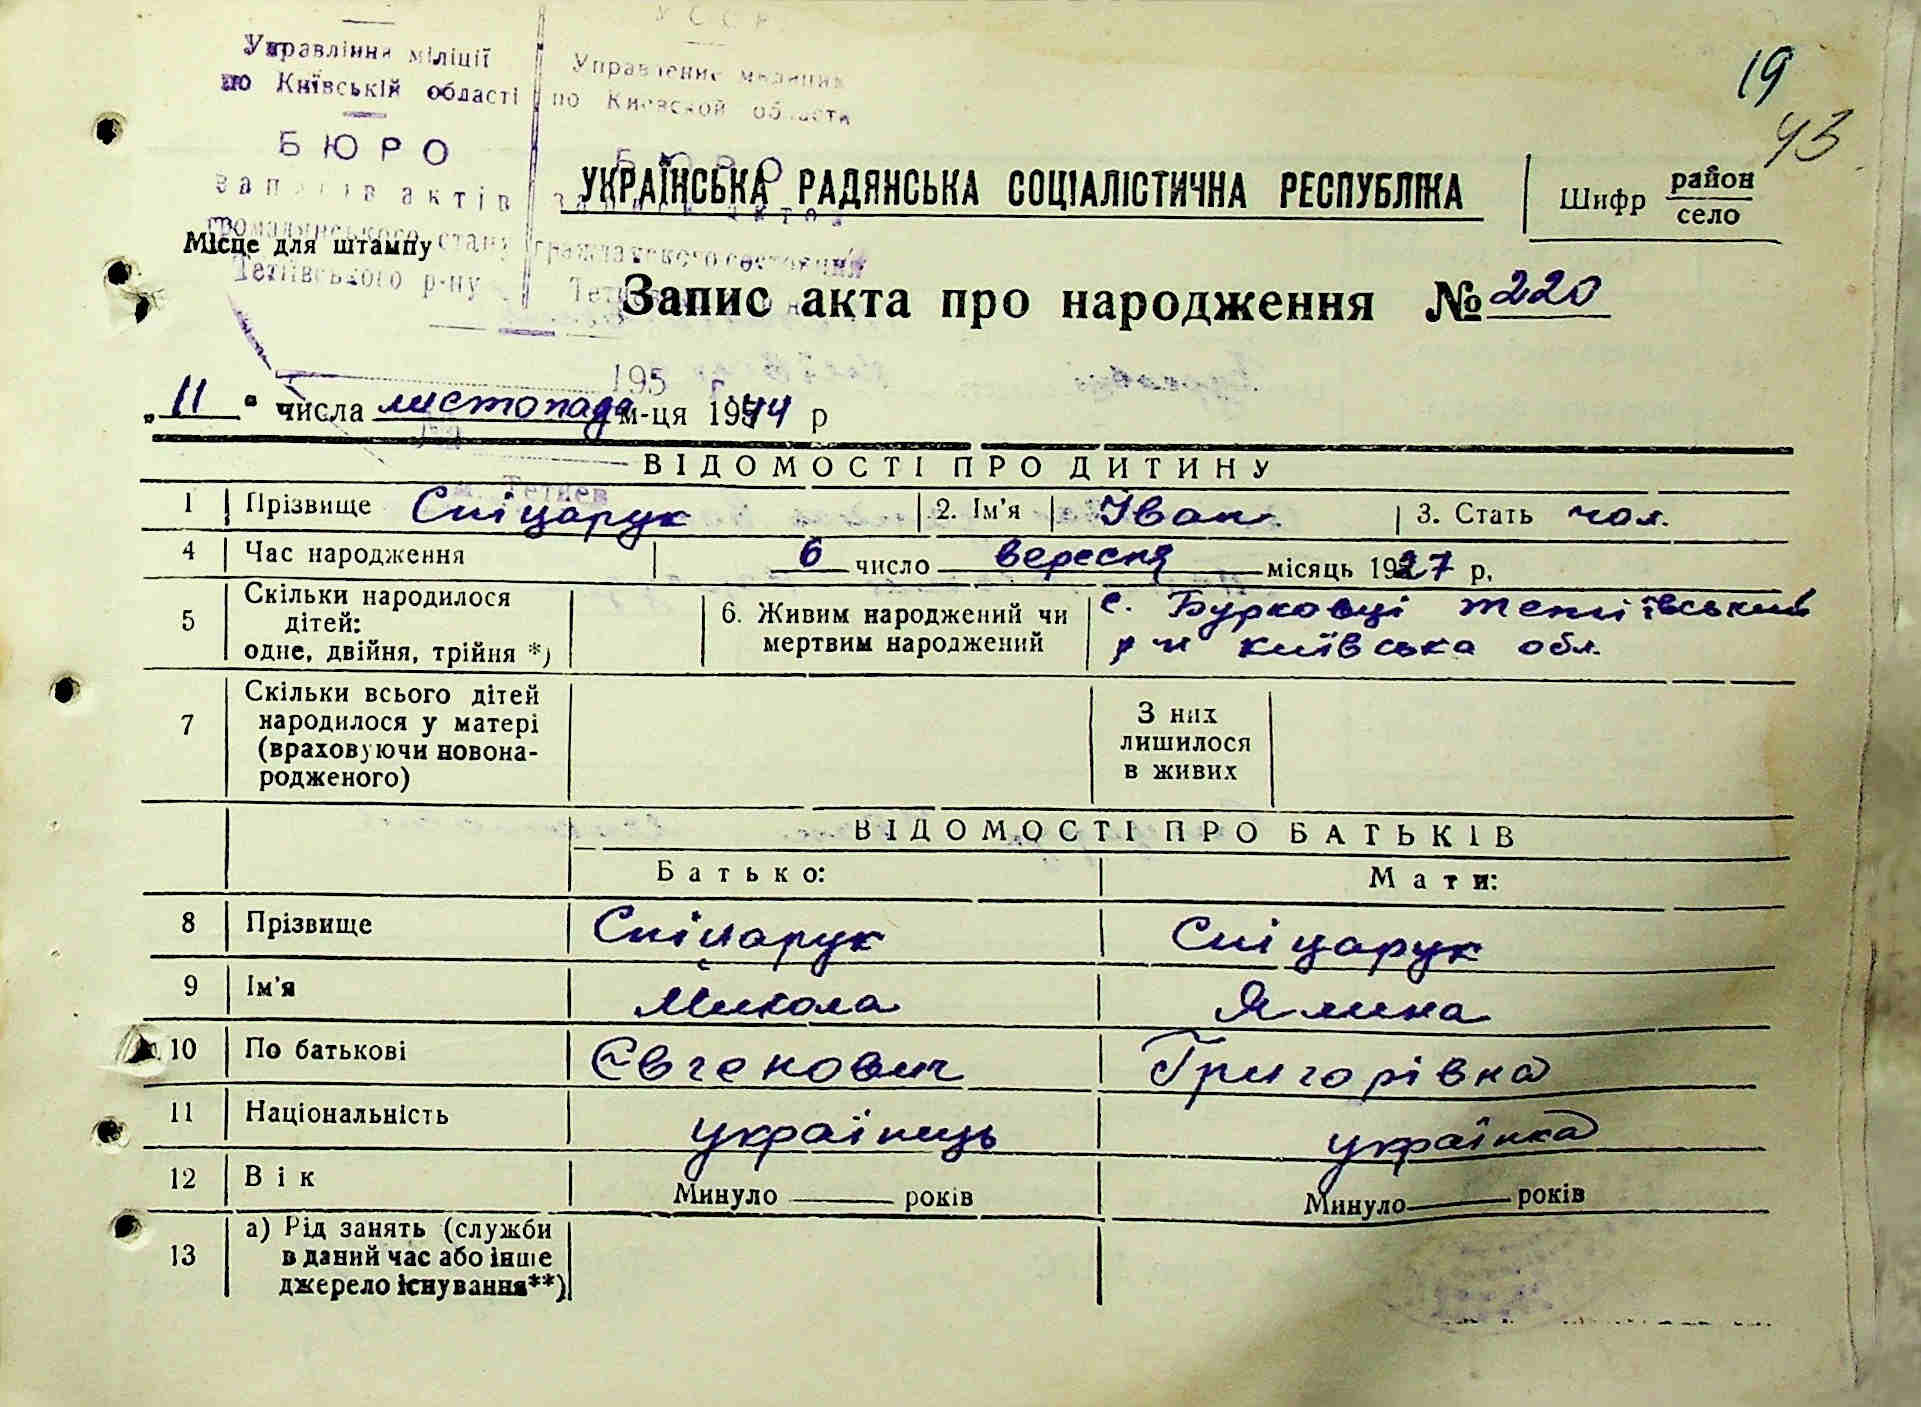 УССР
Управління міліції
по Київській області
БЮРО
записів актів
громадянського стану
Тетіївського р-ну
Управление милиции
по Киевской области
БЮРО
записи актов
гражданского состояния
195 г.
м. Тетиев
19
43
УКРАЇНСЬКА РАДЯНСЬКА СОЦІАЛІСТИЧНА РЕСПУБЛІКА
Шифр район
село
Місце для штампу
Запис акта про народження № 220
„11" числа листопада м-ця 1944 р
ВІДОМОСТІ ПРО ДИТИНУ
1 Прізвище Спіцарук 2. Ім'я Іван 3. Стать чол.
4 Час народження 6 число вересня місяць 1927 р.
5 Скільки народилося дітей: одне, двійня, трійня *) 6. Живим народжений чи мертвим народжений с. Бурковці Тетіївський
р-н Київська обл.
7 Скільки всього дітей народилося у матері (враховуючи новонародженого) З них лишилося в живих
ВІДОМОСТІ ПРО БАТЬКІВ
Батько: Мати:
8 Прізвище Спіцарук Спіцарук
9 Ім'я Микола Ялина
10 По батькові Євгенович Григорівна
11 Національність українець українка
12 Вік Минуло років Минуло років
13 а) Рід занять (служби
в даний час або інше
джерело існування**)